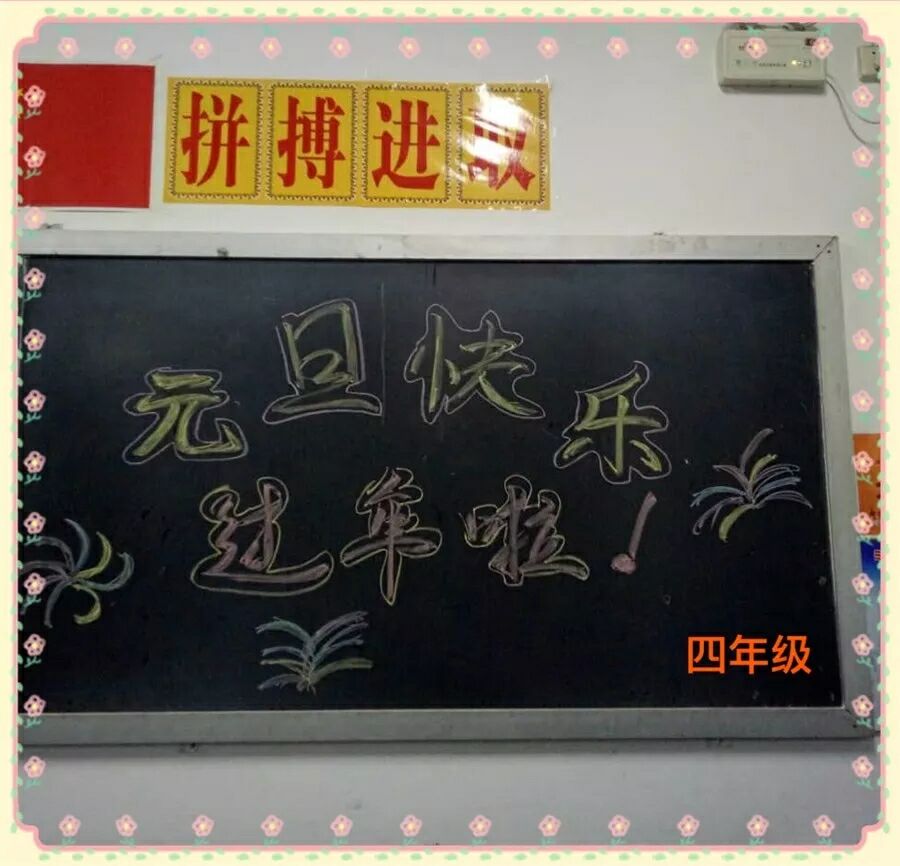 拼搏进取
元旦快乐
过年啦！
四年级